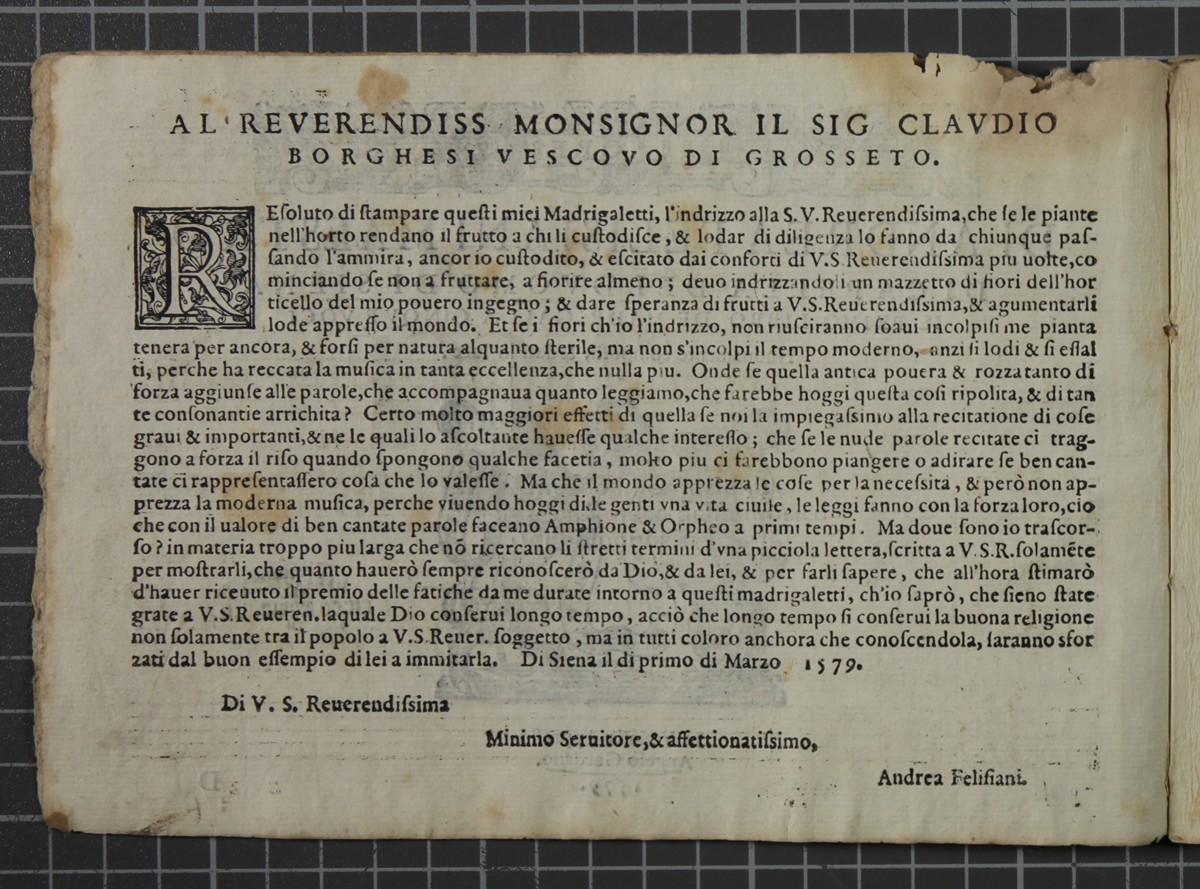 AL REVERENDISS MONSIGNOR IL SIG CLAVDIO
BORGHESI VESCOVO DI GROSSETO.
REſoluto di ſtampare queſti miei Madrigaletti, l'indrizzo alla S.V.Reuerendiſsima,che ſe le piante
nell'horto rendano il frutto a chi li cuſtodiſce, & lodar di diligenza lo fanno da chiunque paſ-
ſando l'ammira, ancor io cuſtodito, & eſcitato dai conforti di V.S.Reuerendiſsima piu uolte,co
minciando ſe non a fruttare, a fiorire almeno ; deuo indrizzandoli un mazzetto di fiori dell'hor
ticello del mio pouero ingegno ; & dare ſperanza di frutti a V.S.Reuerendiſsima,& agumentarli
lode appreſſo il mondo. Et ſe i fiori ch'io l'indrizzo, non riuſciranno ſoaui incolpiſi me pianta
tenera per ancora, & forſi per natura alquanto ſterile, ma non s'incolpi il tempo moderno, anzi ſi lodi & ſi eſſal
ti, perche ha reccata la muſica in tanta eccellenza,che nulla piu. Onde ſe quella antica pouera & rozza tanto di
forza aggiunſe alle parole,che accompagnaua quanto leggiamo,che farebbe hoggi queſta coſi ripolita, & di tan
te conſonantie arrichita? Certo molto maggiori effetti di quella ſe noi la impiegaſsimo alla recitatione di coſe
graui & importanti,& ne le quali lo aſcoltante haueſſe qualche intereſſo ; che ſe le nude parole recitate ci trag-
gono a forza il riſo quando ſpongono qualche facetia, molto piu ci farebbono piangere o adirare ſe ben can-
tate ci rappreſentaſſero coſa che lo valeſſe. Ma che il mondo apprezza le coſe per la neceſsità, & però non ap-
prezza la moderna muſica, perche viuendo hoggi di le genti vna vita ciuile, le leggi fanno con la forza loro,cio
che con il ualore di ben cantate parole faceano Amphione & Orpheo a primi tempi. Ma doue ſono io traſcor-
ſo? in materia troppo piu larga che nō ricercano li ſtretti termini d'vna picciola lettera,ſcritta a V.S.R.ſolamēte
per moſtrarli,che quanto hauerò ſempre riconoſcerò da Dio,& da lei, & per farli ſapere, che all'hora ſtimarò
d'hauer riceuuto il premio delle fatiche da me durate intorno a queſti madrigaletti, ch'io ſaprò, che ſieno ſtate
grate a V.S.Reueren.laquale Dio conſerui longo tempo, acciò che longo tempo ſi conſerui la buona religione
non ſolamente tra il popolo a V.S.Reuer. ſoggetto, ma in tutti coloro anchora che conoſcendola, ſaranno sfor
zati dal buon eſſempio di lei a immitarla. Di Siena il di primo di Marzo 1579.
Di V. S. Reuerendiſsima
Minimo Seruitore,& affettionatiſsimo,
Andrea Feliſiani.